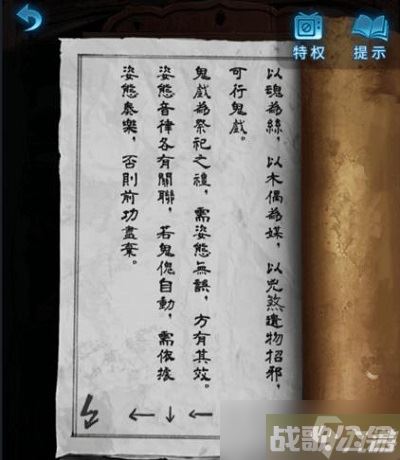 特权
提示
以魂為絲，以木偶為媒，以兇煞遺物招邪，
可行鬼戲。
鬼戲為祭祀之禮，需姿態無誤，方有其效。
姿態音律各有關聯，若鬼傀自動，需依據
姿態奏樂，否則前功盡棄。
← ↓ ←